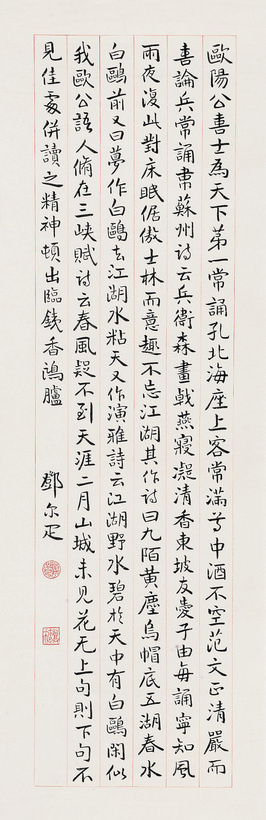 歐陽公喜士為天下第一常誦孔北海座上客常滿尊中酒不空范文正清嚴而
喜論兵常誦韋蘇州詩云兵衛森畫戟燕寢凝清香東坡友愛子由每誦寧知風
雨夜復此對床眠倨傲士林而意趣不忘江湖其作詩曰九陌黃塵烏帽底五湖春水
白鷗前又曰夢作白鷗去江湖水粘天又作演雅詩云江湖野水碧於天中有白鷗閑似
我歐公語人脩在三峽賦詩云春風疑不到天涯二月山城未見花无上句則下句不
見佳處併讀之精神頓出臨錢香隖臚
鄧尔疋